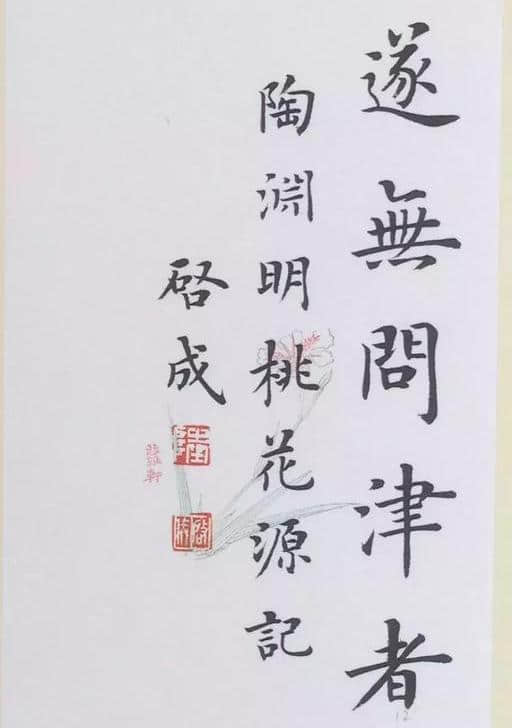 遂無問津者
陶淵明桃花源記
啓成